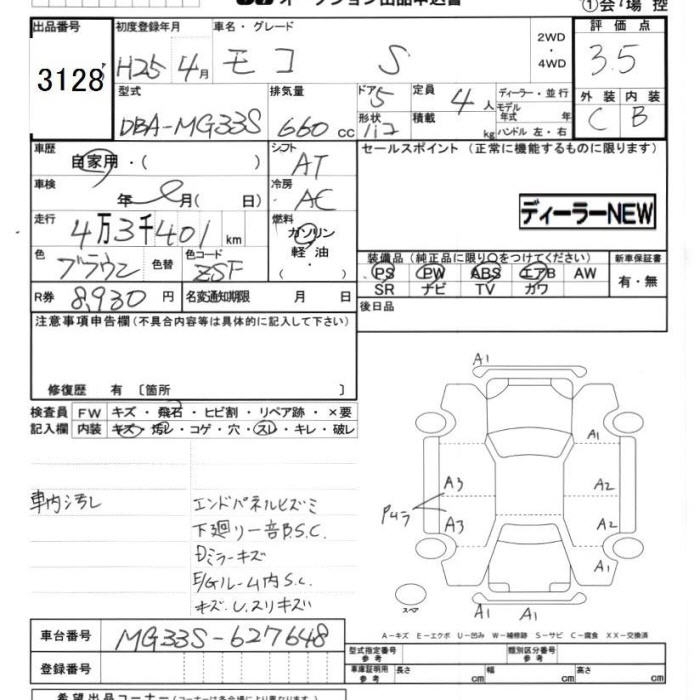 オークション出品申込書
①会場控
出品番号 初度登録年月 車名・グレード 2WD・4WD 評価点
3128 H25 4月 モコ S 3.5
型式 排気量 ドア 5 定員 4人 ディーラー・並行 外装 内装
DBA-MG33S 660cc 形状 積載 kg モデル年式 年 ハンドル 左・右 C B
車歴 自家用・( ) シフト AT セールスポイント (正常に機能するものに限ります)
車検 年 月( 日) 冷房 AC
ディーラーNEW
走行 4万3千401km 燃料 ガソリン・軽油・( )
色 ブラウン 色替 色コード ZSF
装備品 (純正品に限り○をつけてください) 新車保証書
PS PW ABS エアB AW 有・無
SR ナビ TV カワ
R券 8,930円 名変通知期限 月 日
後日品
注意事項申告欄(不具合内容等は具体的に記入して下さい)
修復歴 有〔箇所 〕
検査員記入欄 FW キズ・飛石・ヒビ割・リペア跡・×要
内装 キズ・汚レ・コゲ・穴・スレ・キレ・破レ
A1
A1
A3 A2
Pムラ
A3 A2
A1
A1 A1
スペア
車内汚レ
エンドパネルヒズミ
下廻リ一音B.S.C.
Dミラーキズ
E/Gルーム内S.C.
キズ.U.スリキズい
A-キズ E-エクボ U-凹み W-補修跡 S-サビ C-腐食 XX-交換済
車台番号 MG33S-627648
型式指定番号 参考 類別区分番号 参考
登録番号
車庫証明用 参考 長さ cm 幅 cm 高さ cm
希望出品コーナー(コーナーは各会場により異なります)